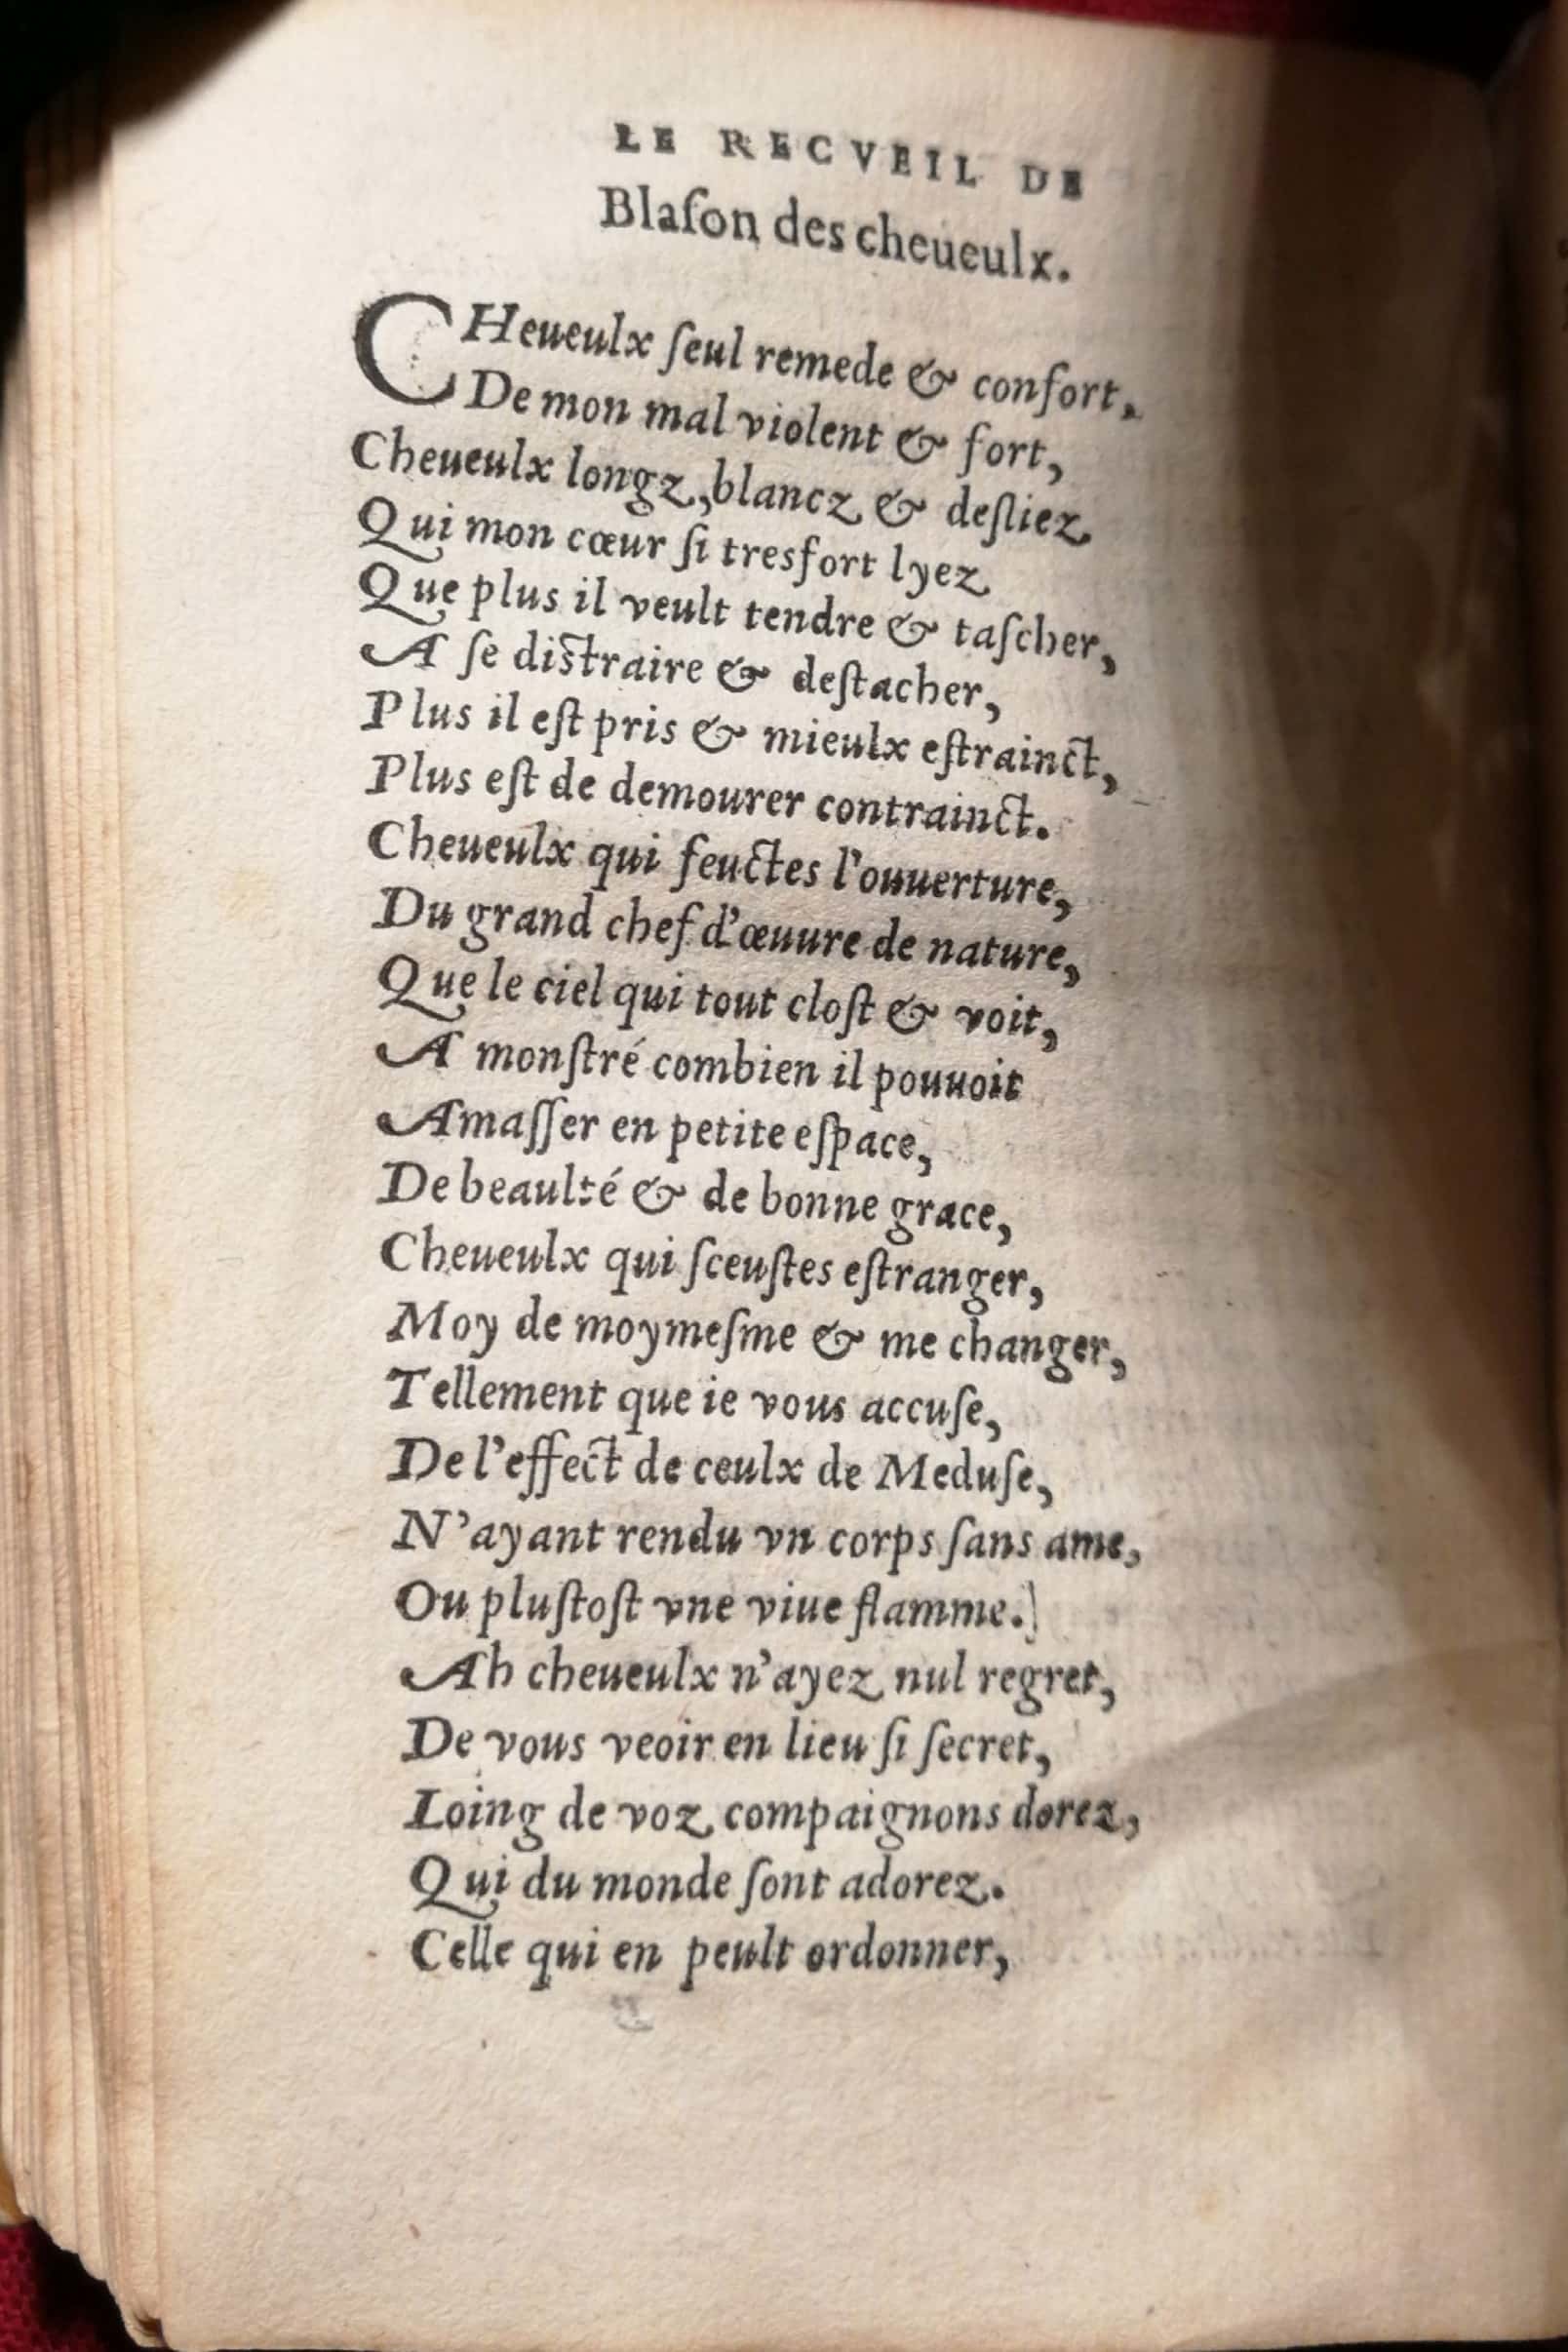 LE RECVEIL DE
Blaſon des cheueulx.
CHeueulx ſeul remede & confort,
De mon mal violent & fort,
Cheueulx longz, blancz & deſliez
Qui mon cœur ſi tresfort lyez
Que plus il veult tendre & taſcher,
A ſe diſtraire & deſtacher,
Plus il eſt pris & mieulx eſtrainct,
Plus eſt de demourer contrainct.
Cheueulx qui feuctes l'ouuerture,
Du grand chef d'œuure de nature,
Que le ciel qui tout cloſt & voit,
A monſtré combien il pouuoit
Amaſſer en petite eſpace,
De beaulté & de bonne grace,
Cheueulx qui ſceuſtes eſtranger,
Moy de moymeſme & me changer,
Tellement que ie vous accuſe,
De l'effect de ceulx de Meduſe,
N'ayant rendu vn corps ſans ame,
Ou pluſtoſt vne viue flamme.
Ah cheueulx n'ayez nul regret,
De vous veoir en lieu ſi ſecret,
Loing de voz compaignons dorez,
Qui du monde ſont adorez.
Celle qui en peult ordonner,